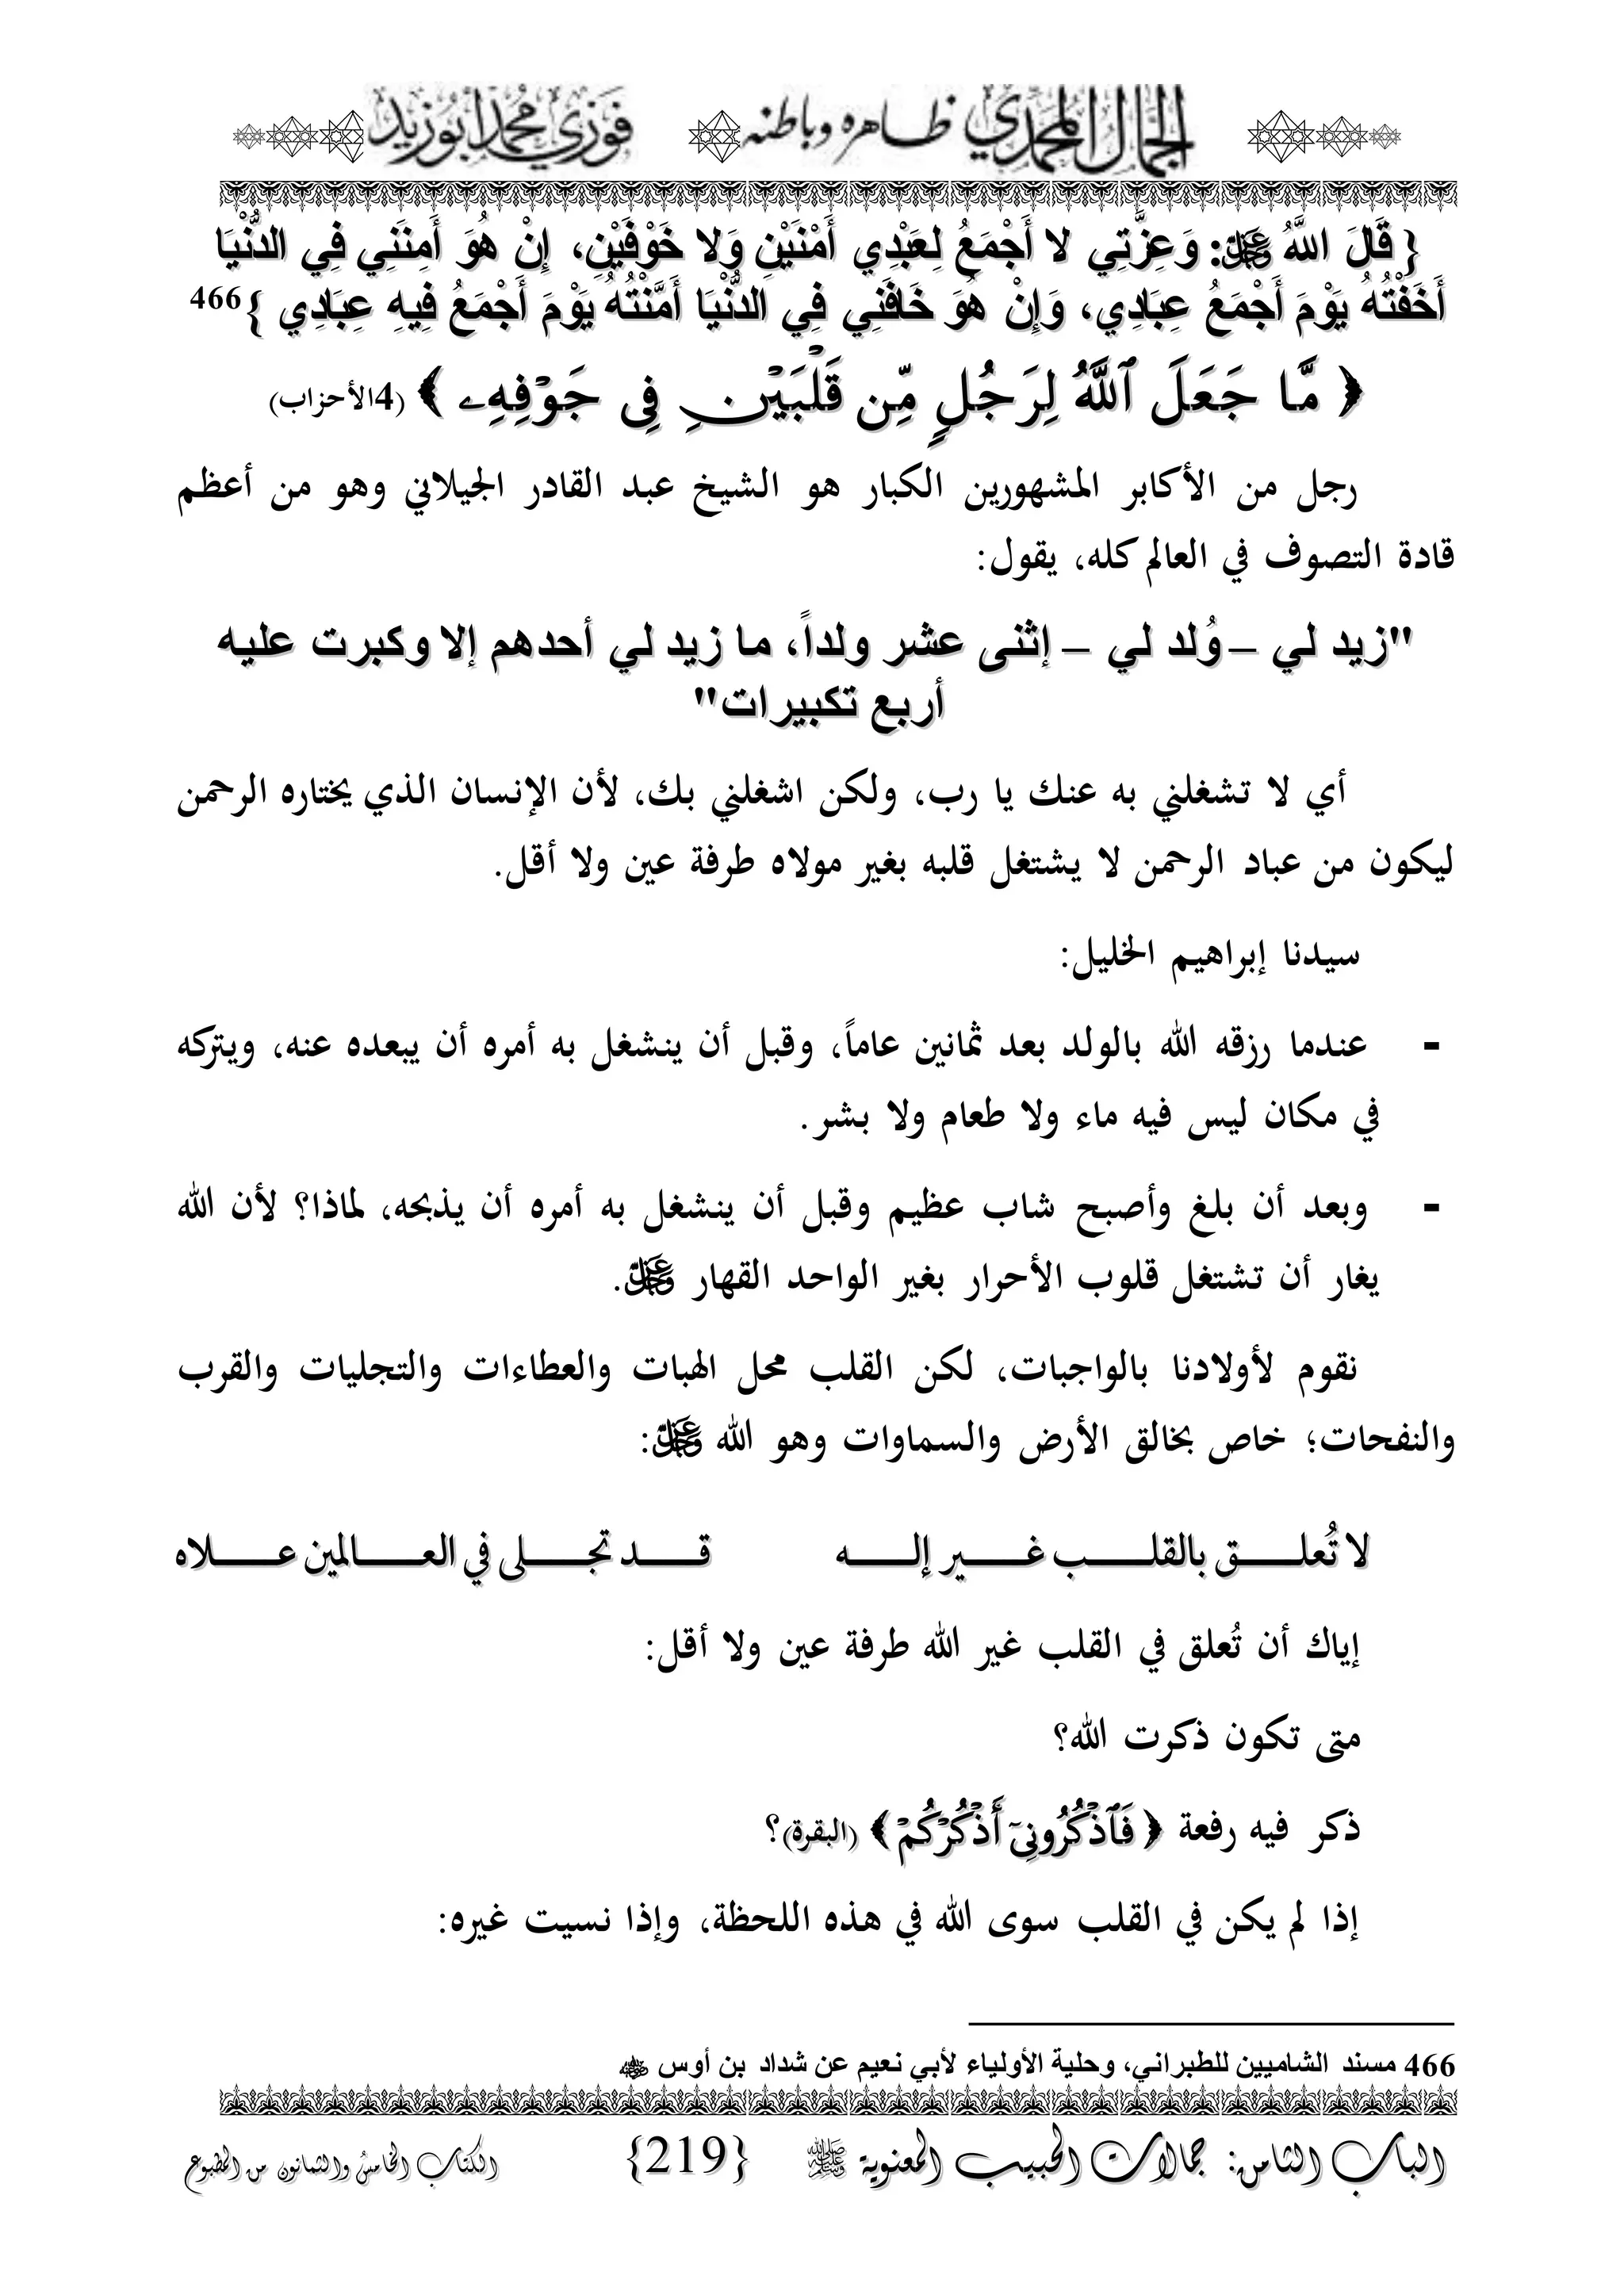 الجمال المحمدي ظاهره وباطنه فوزي محمد أبوزيد
{ قَالَ اللَّهُ ﷿: وَعِزَّتِي لا أَجْمَعُ لِعَبْدِي أَمْنَيْنِ وَلا خَوْفَيْنِ، إِنْ هُوَ أَمِنَنِي فِي الدُّنْيَا
أَخَفْتُهُ يَوْمَ أَجْمَعُ عِبَادِي، وَإِنْ هُوَ خَافَنِي فِي الدُّنْيَا أَمَّنْتُهُ يَوْمَ أَجْمَعُ فِيهِ عِبَادِي }466
﴿ مَّا جَعَلَ ٱللَّهُ لِرَجُلٍ مِّن قَلْبَيْنِ فِى جَوْفِهِۦ ﴾ (4الأحزاب)
رجل من الأكابر المشهورين الكبار هو الشيخ عبد القادر الجيلاني وهو من أعظم
قادة التصوف في العالم كله، يقول:
"زيد لي – وُلد لي – إثنى عشر ولداً، ما زيد لي أحدهم إلا وكبرت عليه
أربع تكبيرات"
أي لا تشغلني به عنك يا رب، ولكن اشغلني بك، لأن الإنسان الذي يختاره الرحمن
ليكون من عباد الرحمن لا يشتغل قلبه بغير مولاه طرفة عين ولا أقل.
سيدنا إبراهيم الخليل:
- عندما رزقه الله بالولد بعد ثمانين عاماً، وقبل أن ينشغل به أمره أن يبعده عنه، ويتركه
في مكان ليس فيه ماء ولا طعام ولا بشر.
- وبعد أن بلغ وأصبح شاب عظيم وقبل أن ينشغل به أمره أن يذبحه، لماذا؟ لأن الله
يغار أن تشتغل قلوب الأحرار بغير الواحد القهار ﷿.
نقوم لأولادنا بالواجبات، لكن القلب محل الهبات والعطاءات والتجليات والقرب
والنفحات؛ خاص بخالق الأرض والسماوات وهو الله ﷿:
لا تُعلـق بالقلـب غـير إلـه قـد تجـلى في العـالمين عـلاه
إياك أن تُعلق في القلب غير الله طرفة عين ولا أقل:
متى تكون ذكرت الله؟
ذكر فيه رفعة ﴿ فَٱذْكُرُونِىٓ أَذْكُرْكُمْ ﴾ (البقرة)؟
إذا لم يكن في القلب سوى الله في هذه اللحظة، وإذا نسيت غيره:
466 مسند الشاميين للطبراني، وحلية الأولياء لأبي نعيم عن شداد بن أوس
الباب الثامن: جمالات الحبيب المعنوية ﷺ {219} الكتاب الخامس والثمانون من المطبوع